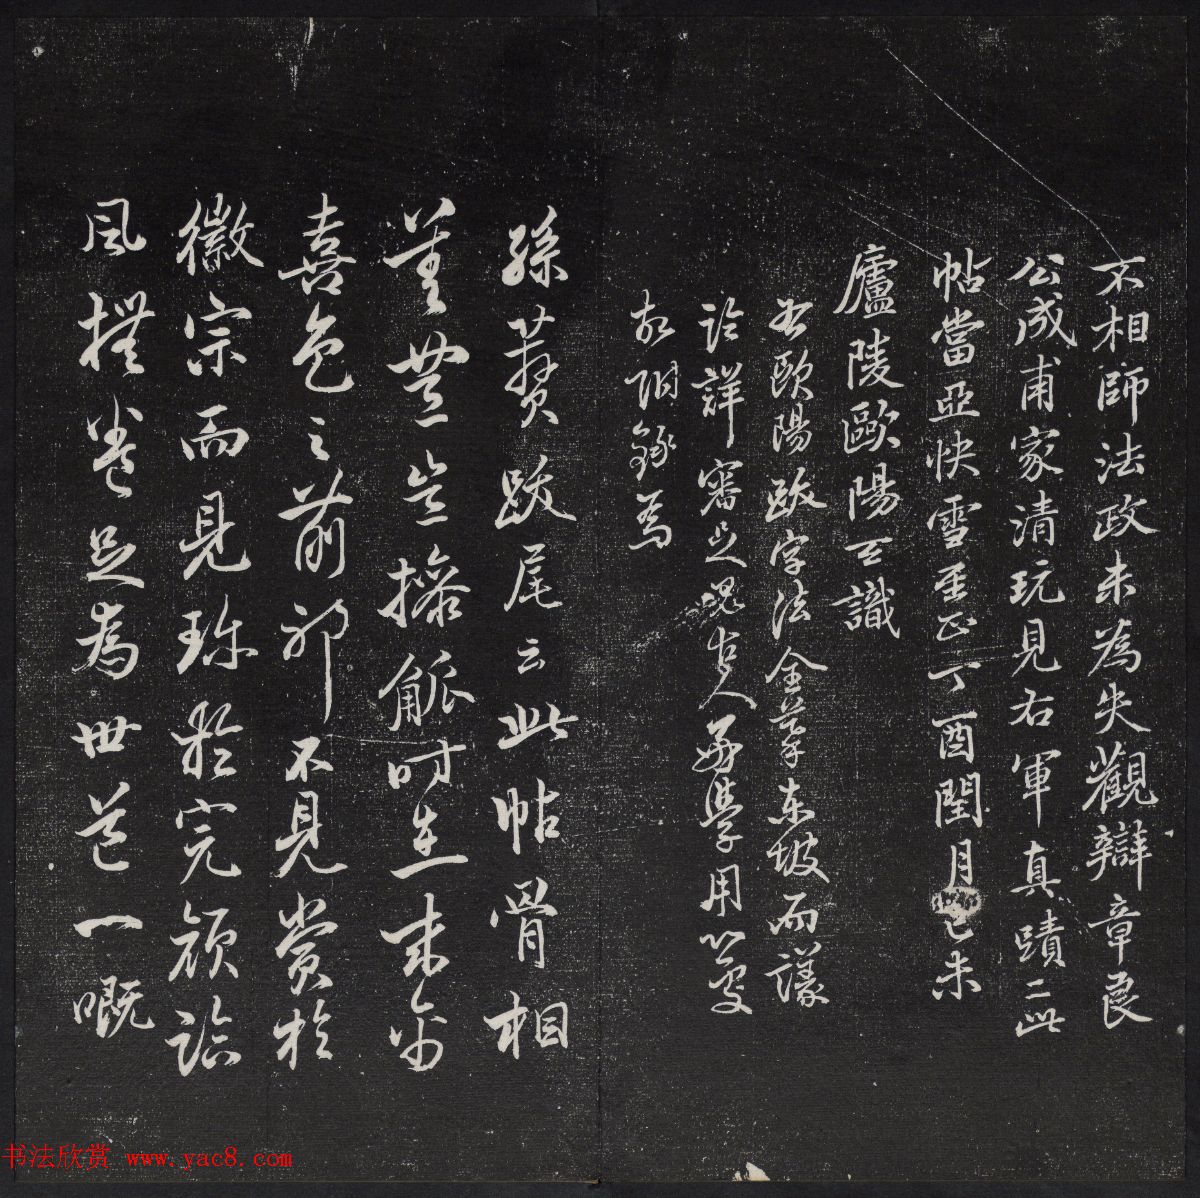 不相師法政未為失觀辯章良
公成甫家清玩見右軍真蹟二此
帖當亞快雪至正丁酉閏月己未
廬陵歐陽玄識
右歐陽跋字法全摹東坡而議
論詳審足見古人無學用
故附錄焉
孫蕡跋尾云此帖骨相
豈操觚時未
喜色之前耶不見賞於
徽宗而見珍於完顏論
風撫卷足為世道一嘅
书法欣赏 www.yac8.com